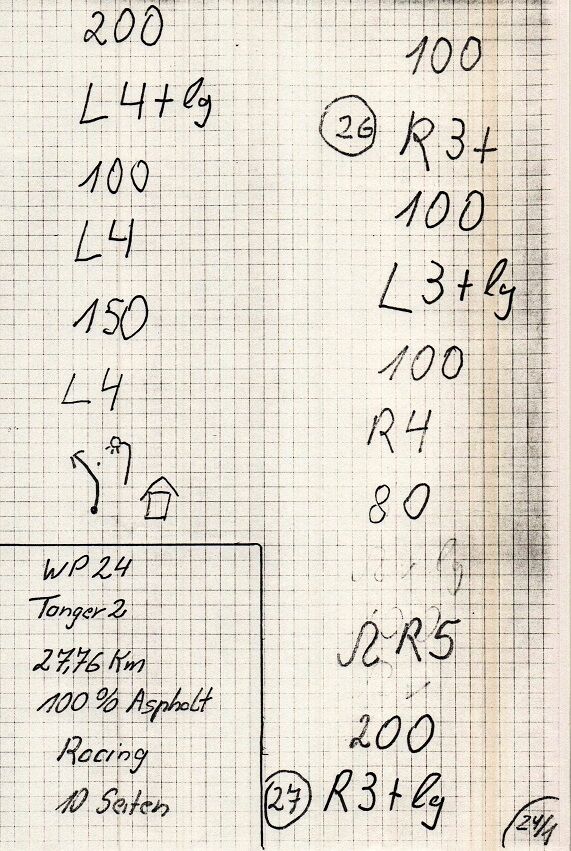 200
L4+lg
100
L4
150
L4
WP 24
Tanger 2
27,76 Km
100% Asphalt
Racing
10 Seiten
100
26 R3+
100
L3+lg
100
R4
80
R5
200
27 R3+lg
24/1